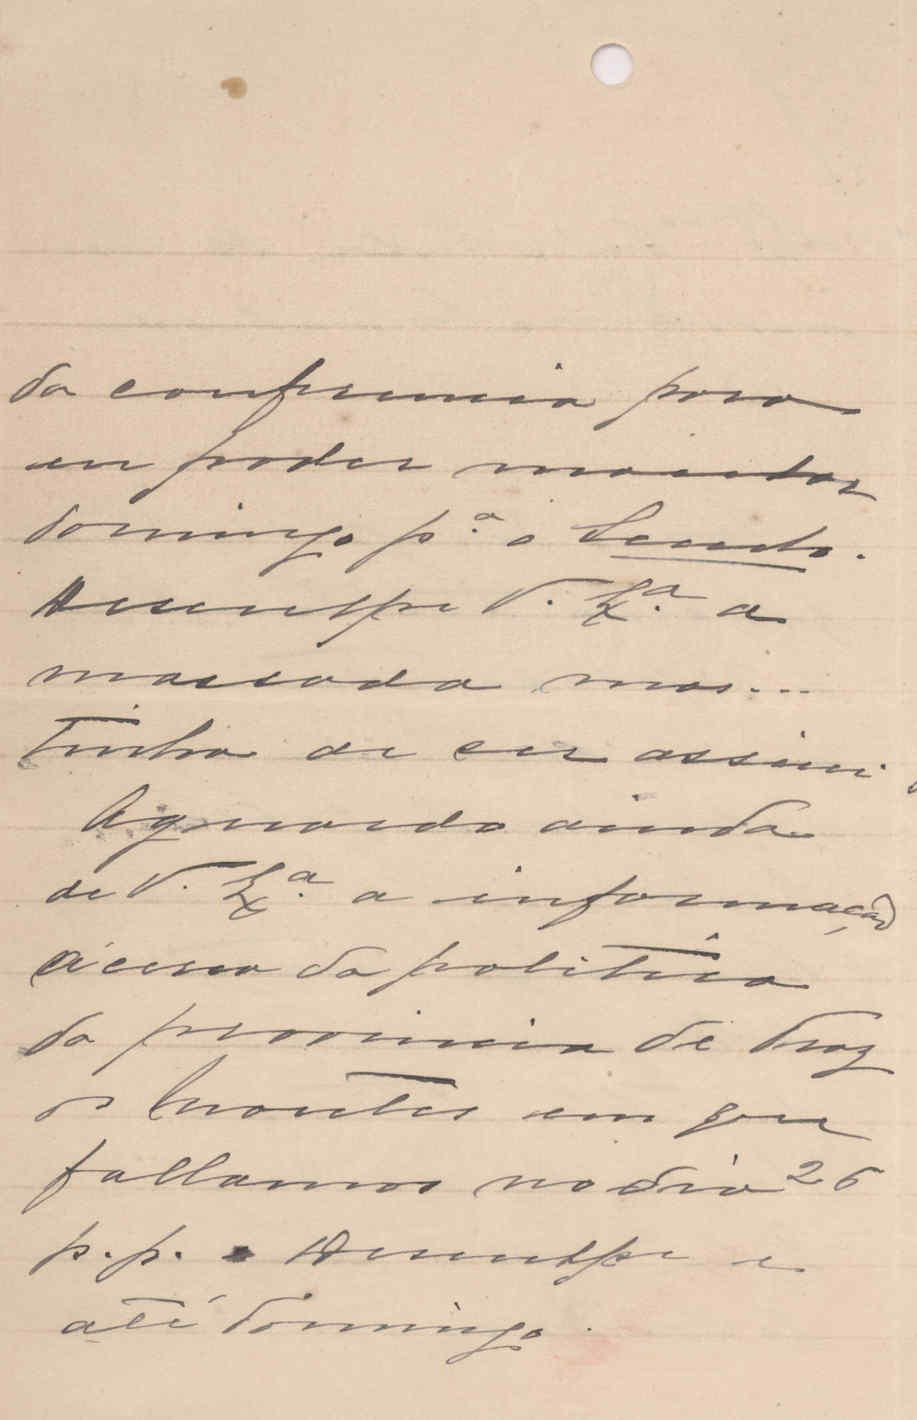 da conferencia para
eu poder mandar
domingo p.ª o Seculo.
Desculpe V. Ex.ª a
massada mas...
Tinha de ser assim.
Aguardo ainda
de V. Ex.ª a informação
ácerca da politica
da provincia de Traz
os Montes em que
fallamos no dia 26
p.p. Desculpe e
até domingo.